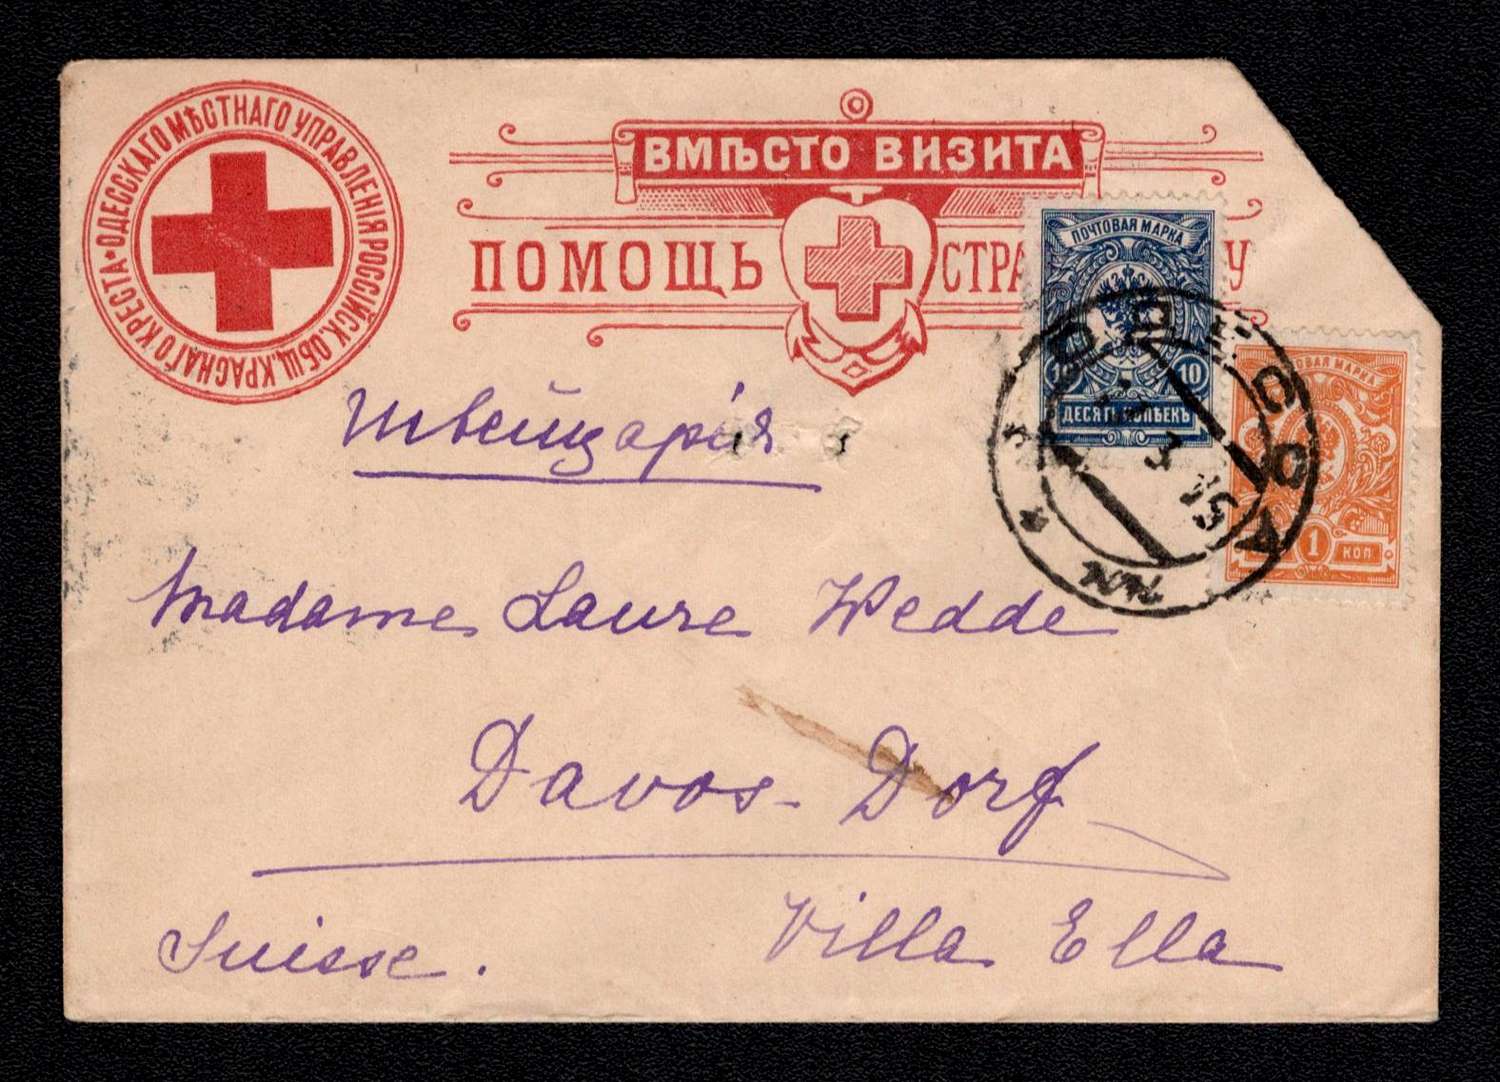 ОДЕССКАГО МѢСТНАГО УПРАВЛЕНІЯ РОССІЙСК. ОБЩ. КРАСНАГО КРЕСТА
ВМѢСТО ВИЗИТА
ПОМОЩЬ СТРА У
ПОЧТОВАЯ МАРКА
10 10
ДЕСЯТЬ КОПѢЕКЪ
ПОЧТОВАЯ МАРКА
1 КОП.
ОДЕССА
3 15
Швейцарія
Madame Laure Wedde
Davos-Dorf
Suisse. Villa Ella